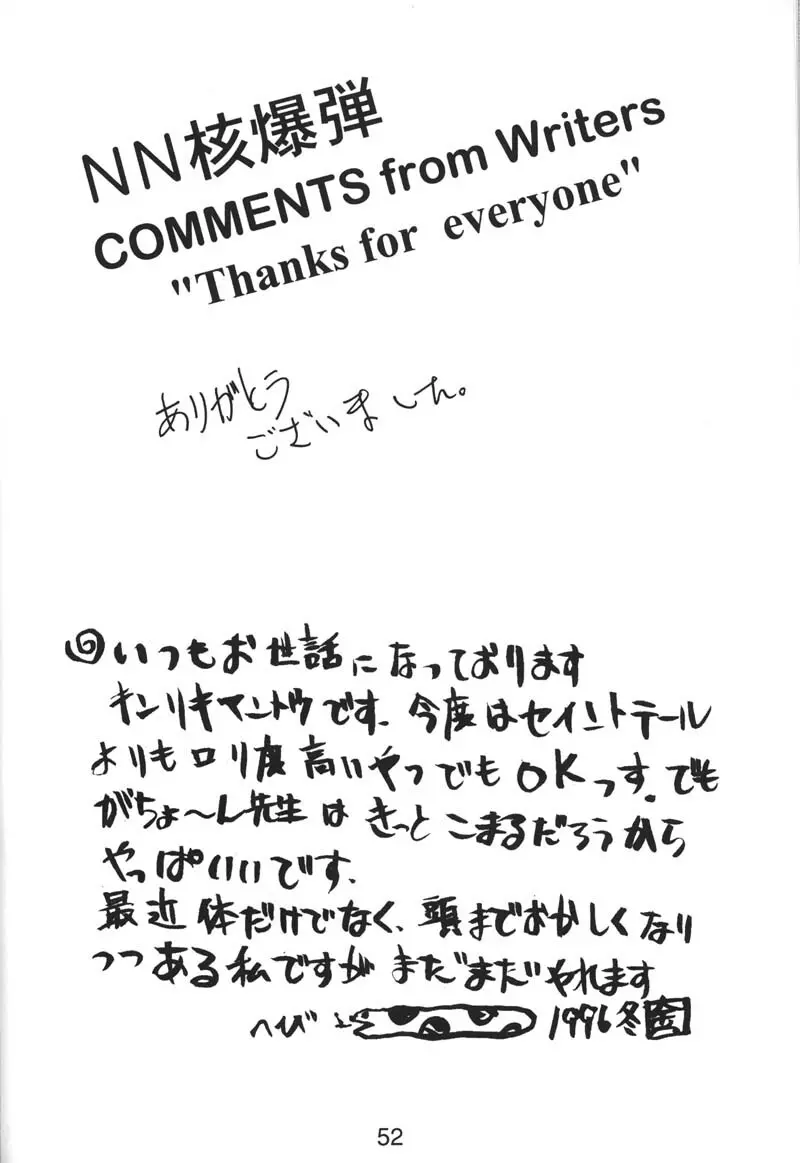 NN核爆弾
COMMENTS from Writers
"Thanks for everyone"
ありがとう
ございました。
いつもお世話になっております
キンリキマントウです。今度はセイントテール
よりもロリ度高いやつでもOKっす。でも
がちょ〜ん先生はきっとこまるだろうから
やっぱいいです。
最近体だけでなく、頭までおかしくなり
つつある私ですがまだまだやれます
へび 1996冬 金
52